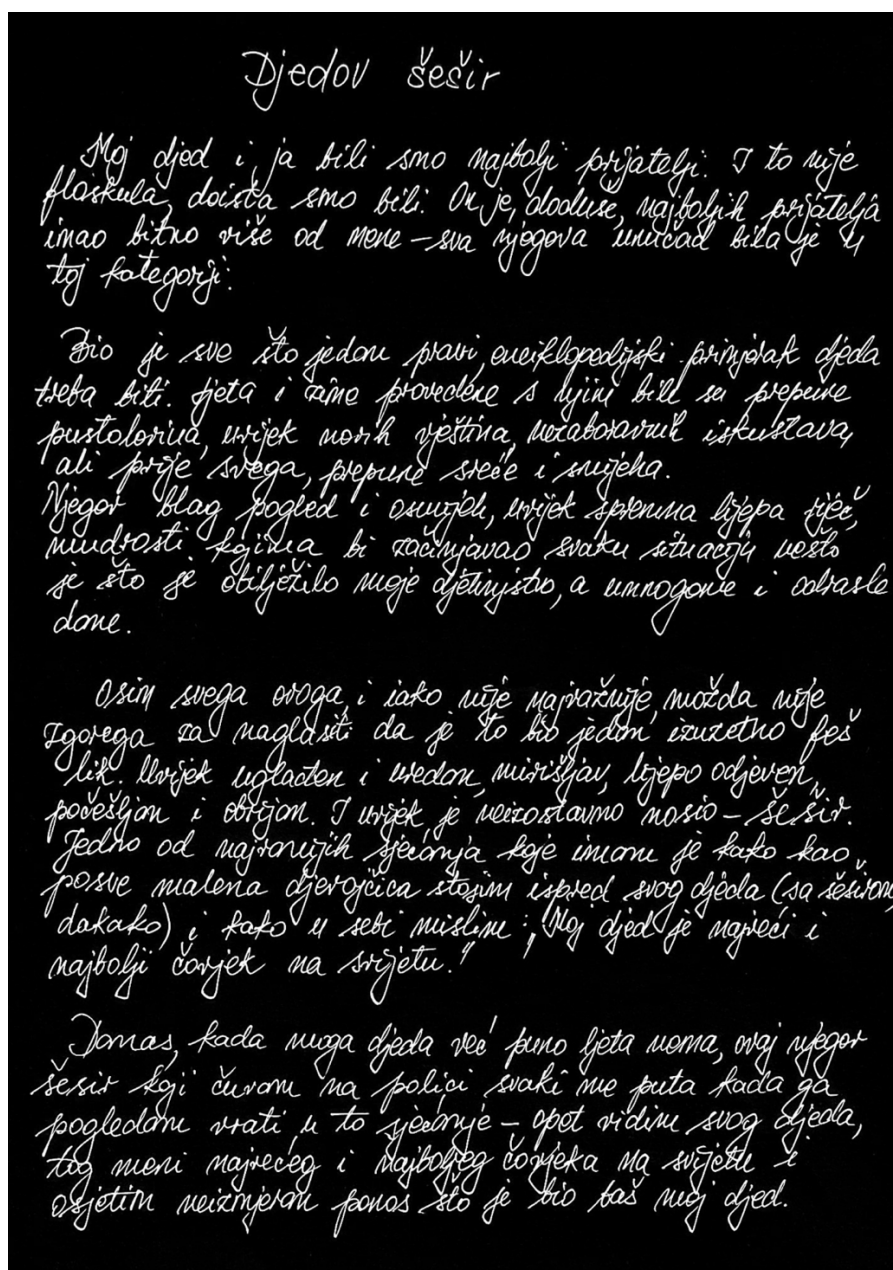 Djedov šešir
Moj djed i ja bili smo najbolji prijatelji. I to nije
floskula, doista smo bili. On je, doduše, najboljih prijatelja
imao bitno više od mene – sva njegova unučad bila je u
toj kategoriji.
Bio je sve što jedan pravi, enciklopedijski primjerak djeda
treba biti. Ljeta i zime provedene s njim bile su prepune
pustolovina, uvijek novih vještina, nezaboravnih iskustava,
ali prije svega, prepune sreće i smijeha.
Njegov blag pogled i osmijeh, uvijek spremna lijepa riječ,
mudrosti kojima bi začinjavao svaku situaciju nešto
je što je obilježilo moje djetinjstvo, a umnogome i odrasle
dane.
Osim svega ovoga, i iako nije najvažnije, možda nije
zgorega za naglasiti da je to bio jedan izuzetno feš
lik. Uvijek uglađen i uredan, mirišljav, lijepo odjeven,
počešljan i obrijan. I uvijek je neizostavno nosio – šešir.
Jedno od najranijih sjećanja koje imam je kako kao
posve malena djevojčica stojim ispred svog djeda (sa šeširom,
dakako) i kako u sebi mislim: „Moj djed je najveći i
najbolji čovjek na svijetu.“
Danas, kada moga djeda već puno ljeta nema, ovaj njegov
šešir koji čuvam na polici svaki me puta kada ga
pogledam vrati u to sjećanje – opet vidim svog djeda,
tog meni najvećeg i najboljeg čovjeka na svijetu i
osjetim neizmjeran ponos što je bio baš moj djed.